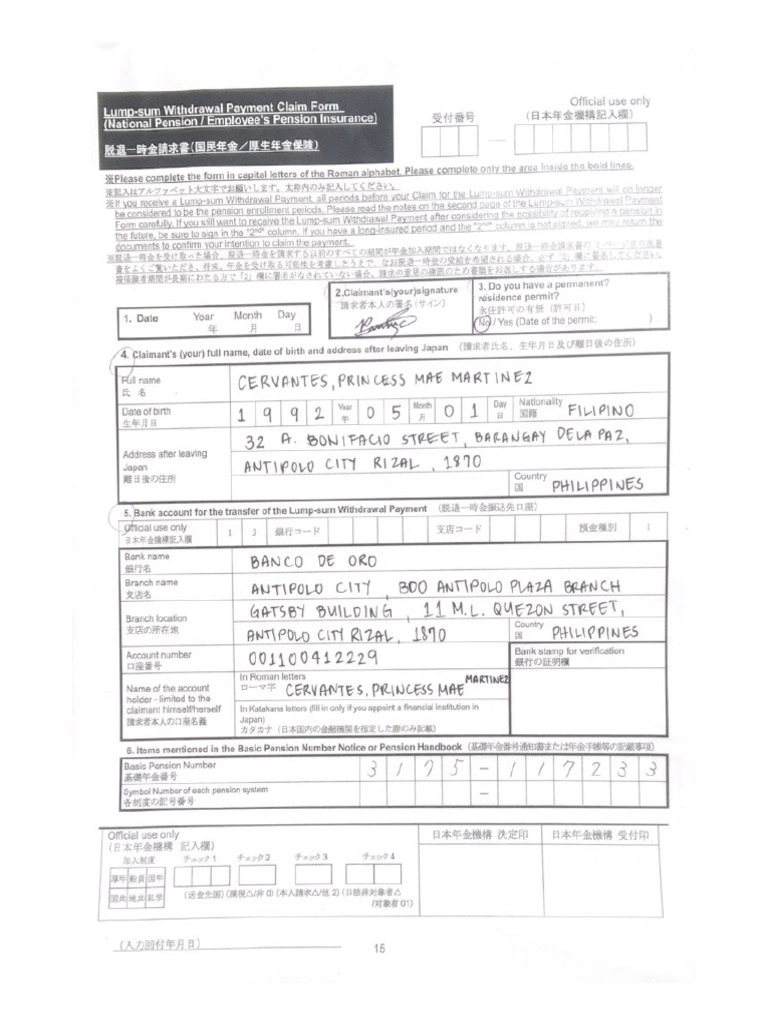 Lump-sum Withdrawal Payment Claim Form
(National Pension / Employee's Pension Insurance)
脱退一時金請求書(国民年金/厚生年金保険)
Official use only
受付番号
(日本年金機構記入欄)
※Please complete the form in capital letters of the Roman alphabet. Please complete only the area inside the bold lines.
※記入はアルファベット大文字でお願いします。太枠内のみ記入してください。
※If you receive a Lump-sum Withdrawal Payment, all periods before your Claim for the Lump-sum Withdrawal Payment will no longer
be considered to be the pension enrollment periods. Please read the notes on the second page of the Lump-sum Withdrawal Payment
Form carefully. If you still want to receive the Lump-sum Withdrawal Payment after considering the possibility of receiving a pension in
the future, be sure to sign in the "2nd" column. If you have a long-insured period and the "2nd" column is not signed, we may return the
documents to confirm your intention to claim the payment.
※脱退一時金を受け取った場合、脱退一時金を請求する以前のすべての期間が年金加入期間ではなくなります。脱退一時金請求書の 2 ページ目の注意
書をよくご覧いただき、将来、年金を受け取る可能性を考慮したうえで、なお脱退一時金の受給を希望される場合、必ず「2」欄に署名してください。
被保険者期間が長期にわたる方で「2」欄に署名がなされていない場合、請求の意思の確認のため書類をお返しする場合があります。
1. Date Year Month Day
年 月 日
2.Claimant's(your)signature
請求者本人の署名(サイン)
3. Do you have a permanent?
residence permit?
永住許可の有無(許可日)
No / Yes (Date of the permit: )
4. Claimant's (your) full name, date of birth and address after leaving Japan (請求者氏名、生年月日及び離日後の住所)
Full name
氏 名
CERVANTES, PRINCESS MAE MARTINEZ
Date of birth
生年月日
1 9 9 2 Year 年 0 5 Month 月 0 1 Day 日
Nationality
国籍
FILIPINO
Address after leaving
Japan
離日後の住所
32 A. BONIFACIO STREET, BARANGAY DELA PAZ,
ANTIPOLO CITY RIZAL, 1870
Country
国
PHILIPPINES
5. Bank account for the transfer of the Lump-sum Withdrawal Payment (脱退一時金振込先口座)
Official use only
日本年金機構記入欄
1 3 銀行コード 支店コード 預金種別 1
Bank name
銀行名
BANCO DE ORO
Branch name
支店名
ANTIPOLO CITY, BDO ANTIPOLO PLAZA BRANCH
Branch location
支店の所在地
GATSBY BUILDING, 11 M.L. QUEZON STREET,
ANTIPOLO CITY RIZAL, 1870
Country
国
PHILIPPINES
Account number
口座番号
001100412229
Bank stamp for verification
銀行の証明欄
Name of the account
holder - limited to the
claimant himself/herself
請求者本人の口座名義
In Roman letters
ローマ字
CERVANTES, PRINCESS MAE MARTINEZ
In Katakana letters (fill in only if you appoint a financial institution in
Japan)
カタカナ(日本国内の金融機関を指定した際のみ記載)
6. Items mentioned in the Basic Pension Number Notice or Pension Handbook (基礎年金番号通知書または年金手帳等の記載事項)
Basic Pension Number
基礎年金番号
3 1 7 5 - 1 1 7 2 3 3
Symbol Number of each pension system
各制度の記号番号
-
Official use only
(日本年金機構 記入欄)
加入制度 チェック1 チェック2 チェック3 チェック4
厚年 船員 国年
国共 地共 私学
(送金先国) (課税△/非 0) (本人請求△/他 2) (日独非対象者△
/対象者 01)
日本年金機構 決定印
日本年金機構 受付印
(入力回付年月日)
15